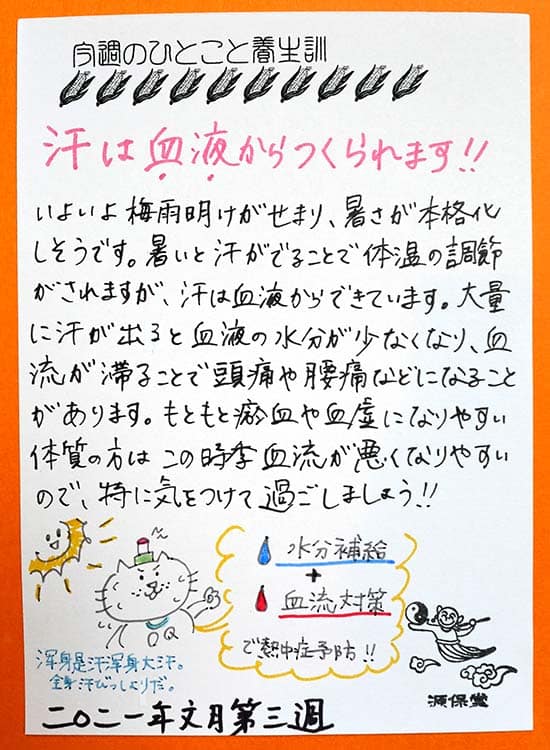 今週のひとこと養生訓
汗は血液からつくられます!!
いよいよ梅雨明けがせまり、暑さが本格化
しそうです。暑いと汗がでることで体温の調節
がされますが、汗は血液からできています。大量
に汗が出ると血液の水分が少なくなり、血
流が滞ることで頭痛や腰痛などになること
があります。もともと瘀血や血虚になりやすい
体質の方はこの時季血流が悪くなりやすい
ので、特に気をつけて過ごしましょう!!
水分補給
+
血流対策
で熱中症予防!!
浑身是汗浑身大汗。
全身汗びっしょりだ。
源保堂
二〇二一年文月第三週